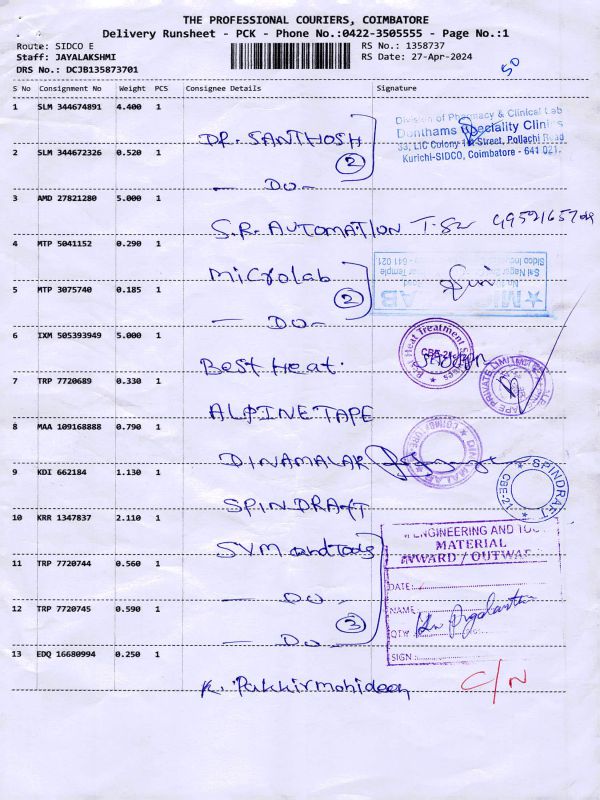 THE PROFESSIONAL COURIERS, COIMBATORE
Delivery Runsheet - PCK - Phone No.:0422-3505555 - Page No.:1
Route: SIDCO E
RS No.: 1358737
Staff: JAYALAKSHMI
RS Date: 27-Apr-2024
DRS No.: DCJB135873701
50
S No Consignment No Weight PCS Consignee Details Signature
1 SLM 344674891 4.400 1
DR. SANTHOSH
Division of Pharmacy & Clinical Lab
Donthams Speciality Clinics
33, LIC Colony 1st Street, Pollachi Road
Kurichi-SIDCO, Coimbatore - 641 021.
2 SLM 344672326 0.520 1
2
- Do -
3 AMD 27821280 5.000 1
S.R. AUTOMATION
4 MTP 5041152 0.290 1
Microlab
Sidco
641 021
Sai Nagar
5 MTP 3075740 0.185 1
2
- Do -
6 IXM 505393949 5.000 1
Best Heat.
Heat Treatment
7 TRP 7720689 0.330 1
ALPINE TAPE
TAPE PRIVATE LIMITED
8 MAA 109168888 0.790 1
DINAMALAR
9 KDI 662184 1.130 1
SPINDRAFT
SPINDRAFT
CBE-21
10 KRR 1347837 2.110 1
SVM and Tools
ENGINEERING AND
MATERIAL
INWARD / OUTWARD
11 TRP 7720744 0.560 1
- Do -
DATE:
NAME
12 TRP 7720745 0.590 1
3
- Do -
QTY
SIGN:
13 EDQ 16680994 0.250 1
K. Pakkirmohideen
C/N